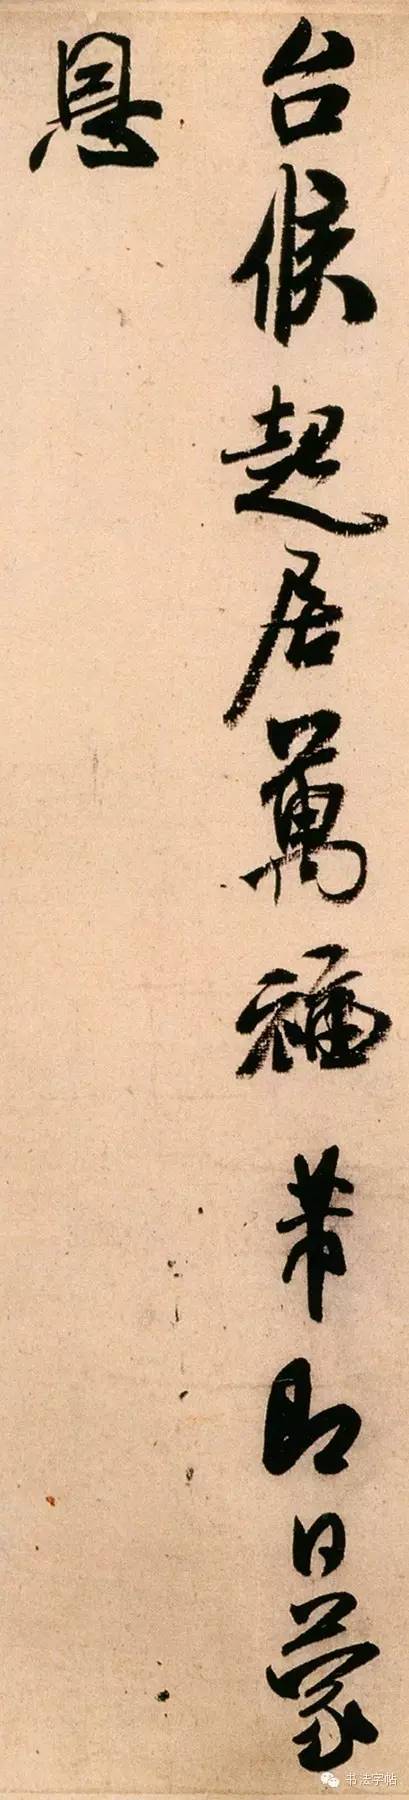 台候起居萬福芾即日蒙
恩
书法字帖